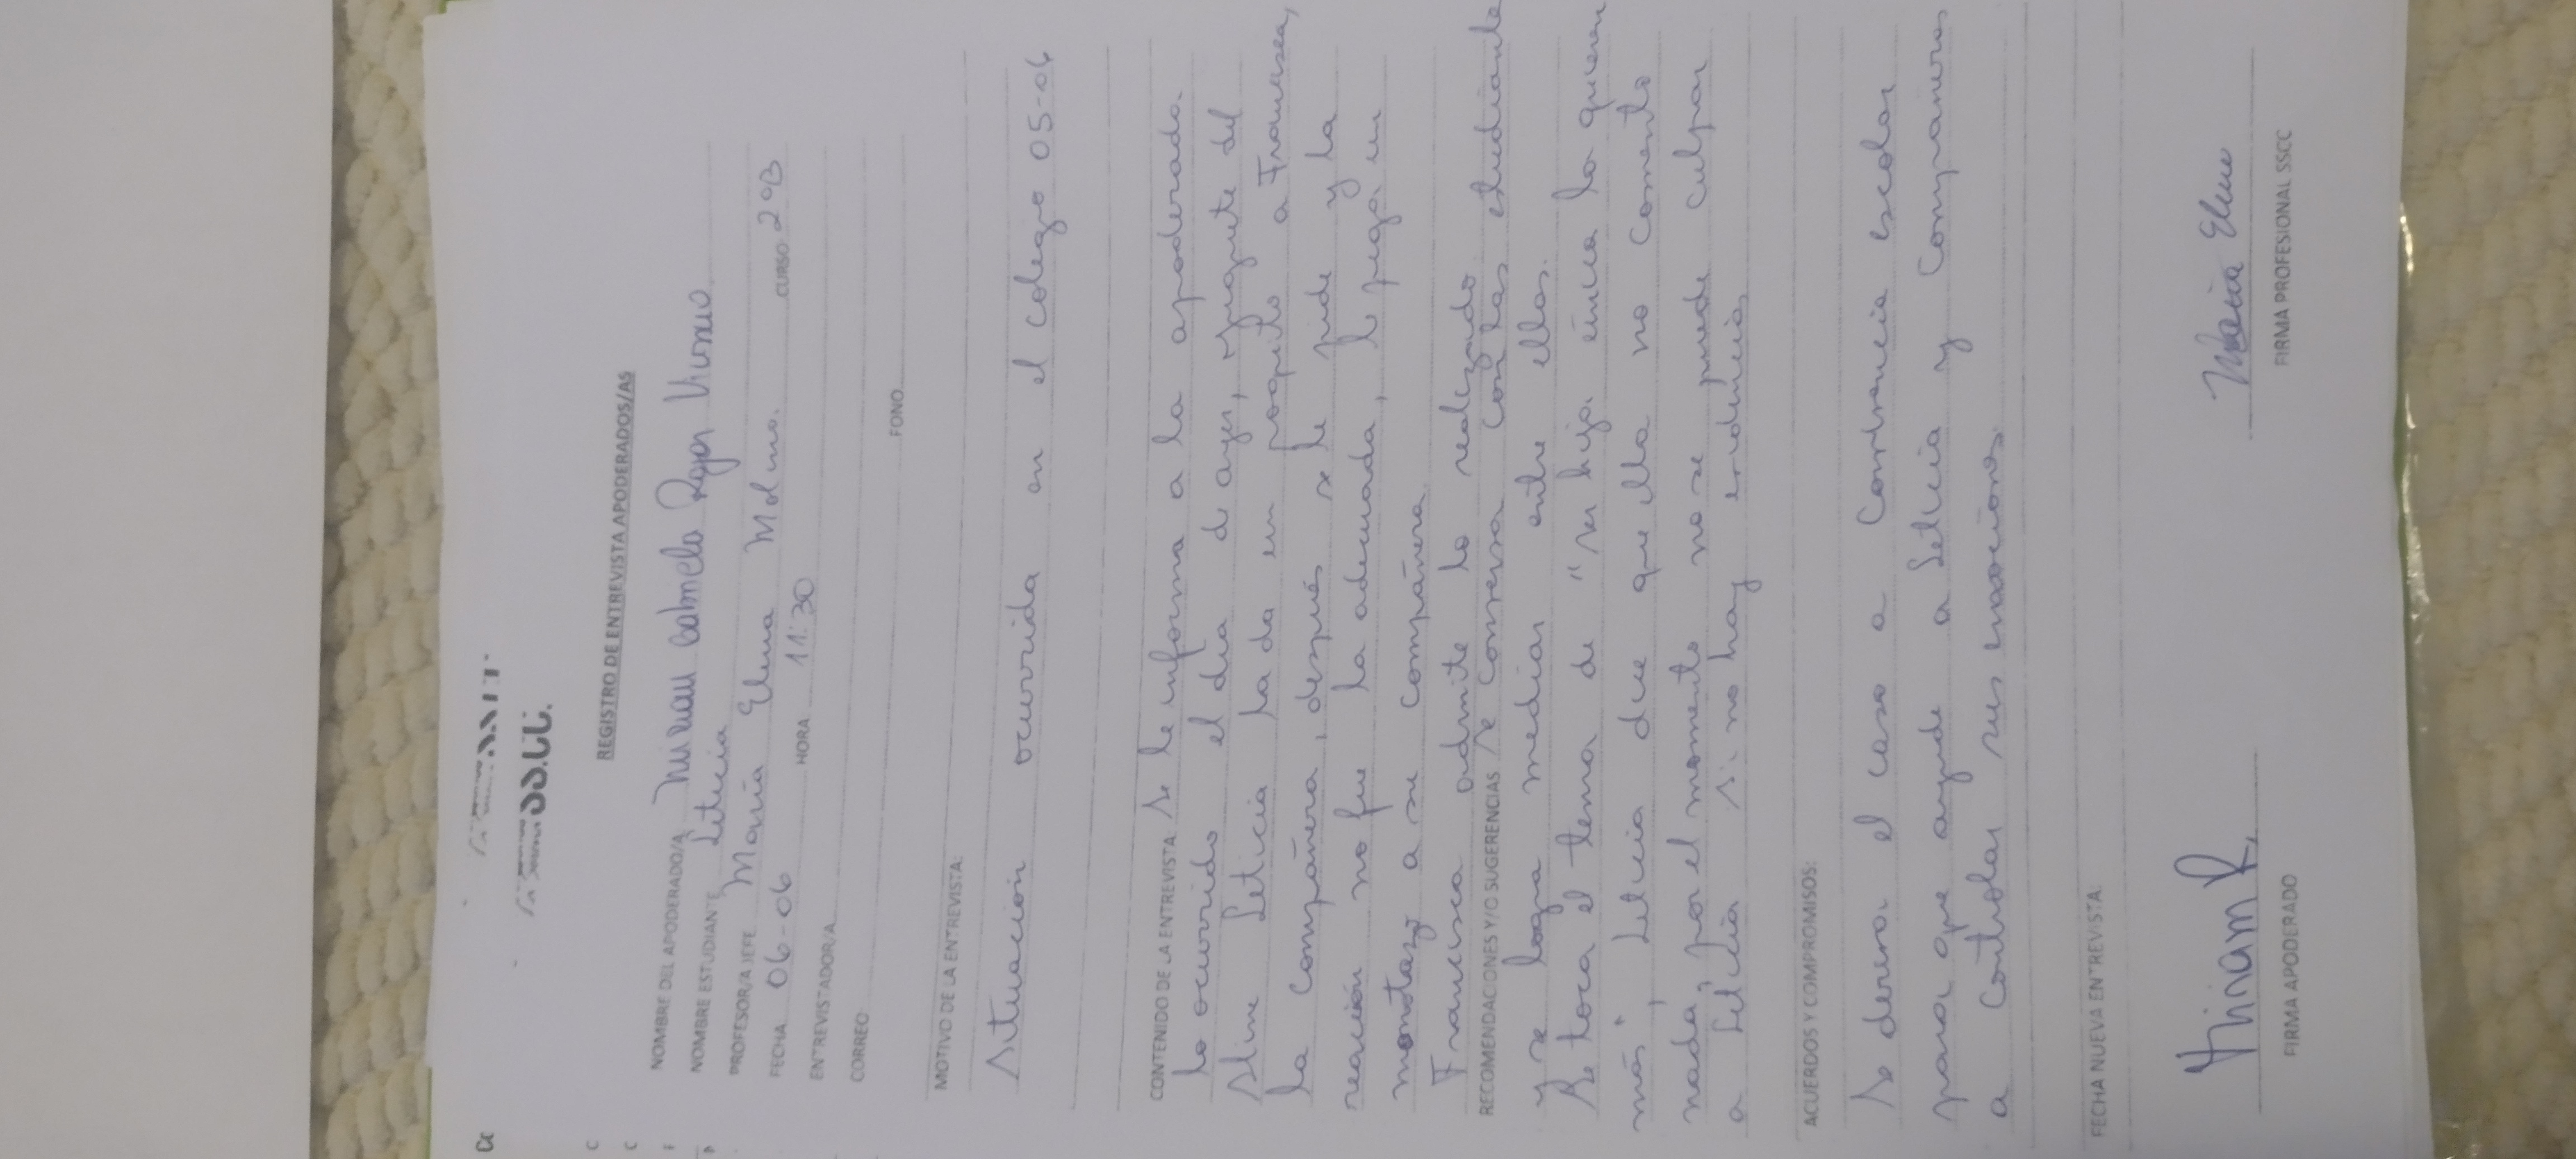 SS.CC.
REGISTRO DE ENTREVISTA APODERADOS/AS
NOMBRE DEL APODERADO/A Miriam Gabriela Rojas
NOMBRE ESTUDIANTE Leticia
PROFESOR/A JEFE María Elena Molina. CURSO 2ºB
FECHA 06-06 HORA 11:30
ENTREVISTADOR/A
CORREO FONO
MOTIVO DE LA ENTREVISTA:
Situación ocurrida en el colegio 05-06
CONTENIDO DE LA ENTREVISTA Se le informa a la apoderado.
lo ocurrido el día d ayer, juguete del
slime Leticia la da un poquito a Francisca,
la compañera, después se le pide y la
reacción no fue la adecuada, le pega un
manotazo a su compañera.
Francisca admite lo realizado.
RECOMENDACIONES Y/O SUGERENCIAS Se conversa con las estudiante
y se logra mediar entre ellas.
Se toca el tema de "su hija única la quieren
más", Leticia dice que ella no comento
nada, por el momento no se puede culpar
a Leticia si no hay evidencias
ACUERDOS Y COMPROMISOS:
Se deriva el caso a Convivencia escolar
para que ayude a Leticia y compañeros
a controlar sus emociones.
FECHA NUEVA ENTREVISTA:
Miriam R.
FIRMA APODERADO
María Elena
FIRMA PROFESIONAL SSCC